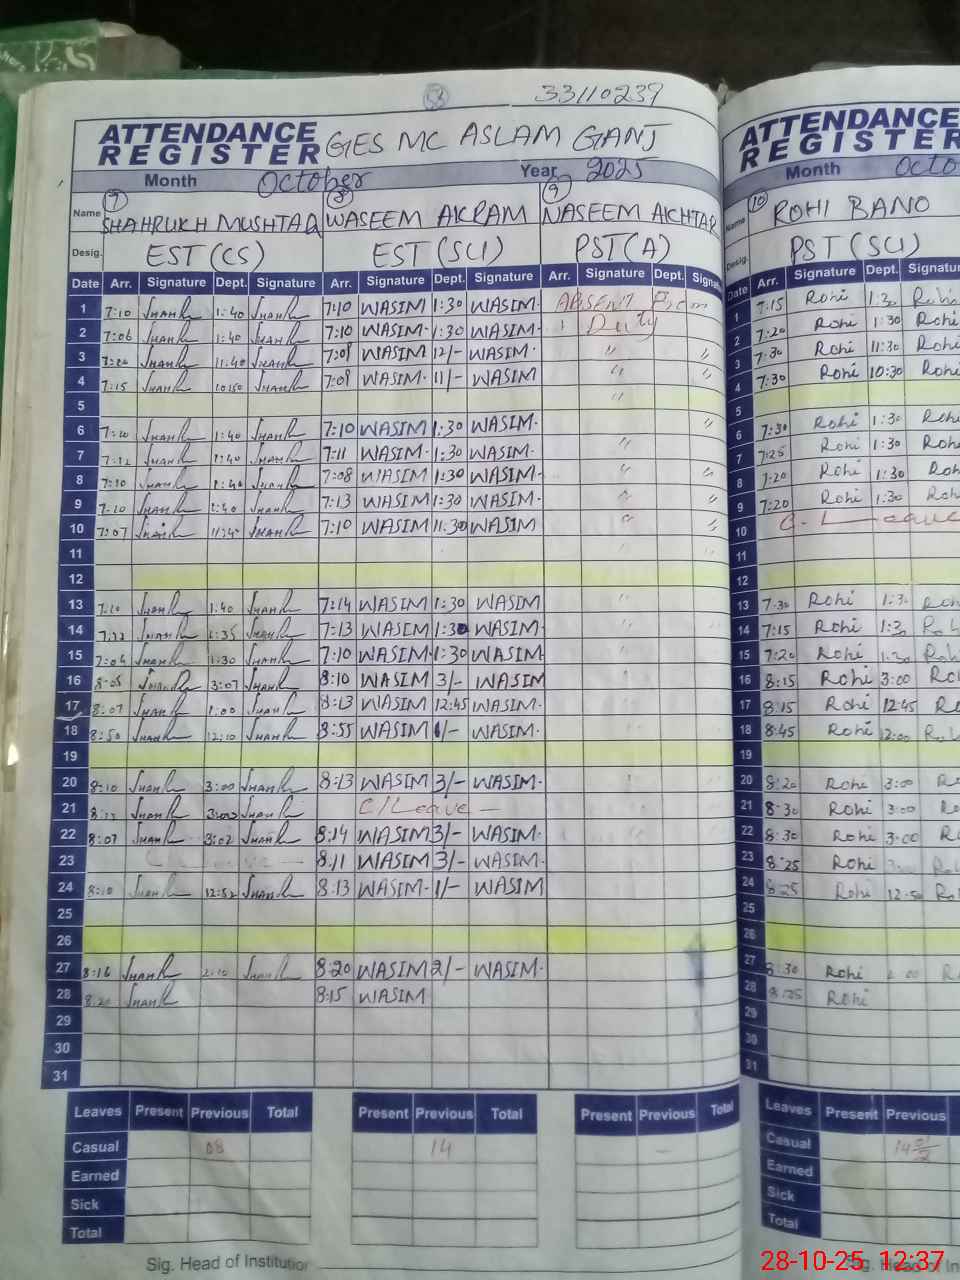 53 33110239
ATTENDANCE REGISTER GES MC ASLAM GANJ
Month October Year 2025
Name 7 SHAHRUKH MUSHTAQ 8 WASEEM AKRAM 9 NASEEM AKHTAR
Desig. EST (CS) EST (SCI) PST (A)
Date Arr. Signature Dept. Signature Arr. Signature Dept. Signature Arr. Signature Dept. Signatu
1 7:10 1:40 7:10 WASIM 1:30 WASIM. ABSENT From
2 7:06 1:40 7:10 WASIM. 1:30 WASIM. Duty
3 7:20 11:40 7:09 WASIM 12/- WASIM. " "
4 7:15 10:50 7:09 WASIM. 11/- WASIM " "
5 "
6 7:10 1:40 7:10 WASIM 1:30 WASIM. "
7 7:12 1:40 7:11 WASIM. 1:30 WASIM. "
8 7:10 1:40 7:08 WASIM 1:30 WASIM. " "
9 7:10 1:40 7:13 WASIM 1:30 WASIM. " "
10 7:07 11:40 7:10 WASIM 11:30 WASIM " "
11 " "
12
13 7:10 1:40 7:14 WASIM 1:30 WASIM "
14 7:12 1:35 7:13 WASIM 1:30 WASIM.
15 7:04 1:30 7:10 WASIM. 1:30 WASIM
16 8:05 3:07 8:10 WASIM 3/- WASIM
17 8:07 1:00 8:13 WASIM 12:45 WASIM.
18 8:50 12:10 8:55 WASIM 1/- WASIM.
19
20 8:10 3:00 8:13 WASIM 3/- WASIM.
21 8:12 3:00 C/Leave
22 8:07 3:02 8:14 WASIM 3/- WASIM.
23 8:11 WASIM 3/- WASIM.
24 8:10 12:52 8:13 WASIM. 1/- WASIM
25
26
27 8:16 2:10 8:20 WASIM 2/- WASIM.
28 8:20 8:15 WASIM
29
30
31
Leaves Present Previous Total Present Previous Total Present Previous Total
Casual 08 14 -
Earned
Sick
Total
Sig. Head of Institution
ATTENDANCE
REGISTER
Month Octo
Name 10 ROHI BANO
Desig. PST (SCI)
Date Arr. Signature Dept. Signatur
1 7:15 Rohi 1:30 Rohi
2 7:20 Rohi 1:30 Rohi
3 7:30 Rohi 11:30 Rohi
4 7:30 Rohi 10:30 Rohi
5
6 7:30 Rohi 1:30 Rohi
7 7:25 Rohi 1:30 Rohi
8 7:20 Rohi 1:30 Rohi
9 7:20 Rohi 1:30 Rohi
10 C. Leave
11
12
13 7:30 Rohi 1:30 Rohi
14 7:15 Rohi 1:30 Rohi
15 7:20 Rohi 1:30 Rohi
16 8:15 Rohi 3:00 Rohi
17 8:15 Rohi 12:45 Ro
18 8:45 Rohi 12:00 Rohi
19
20 8:20 Rohi 3:00 Ro
21 8:30 Rohi 3:00 Ro
22 8:30 Rohi 3:00 Ro
23 8:25 Rohi Rohi
24 8:25 Rohi 12:50 Roh
25
26
27 8:30 Rohi 2:00 R
28 8:25 Rohi
29
30
31
Leaves Present Previous
Casual 14
Earned
Sick
Total
Sig. Head of In
28-10-25 12:37